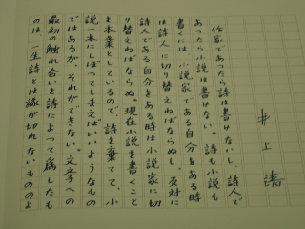 井上靖
作家であったら詩は書けないし、詩人で
あったら小説は書けない。詩も小説も
書くには、小説家である自分をある時
は詩人に切り替えねばならぬし、反対に
詩人である自分をある時は小説家に切
り替えねばならぬ。現在、小説を書くこと
を本業としているので、詩を棄てて、小
説一本にしぼってしまえばいいようなもの
ではあるが、それができない。文学への
最初の触れ合いを詩によって為したも
のは、一生詩とは縁が切れないもののよ